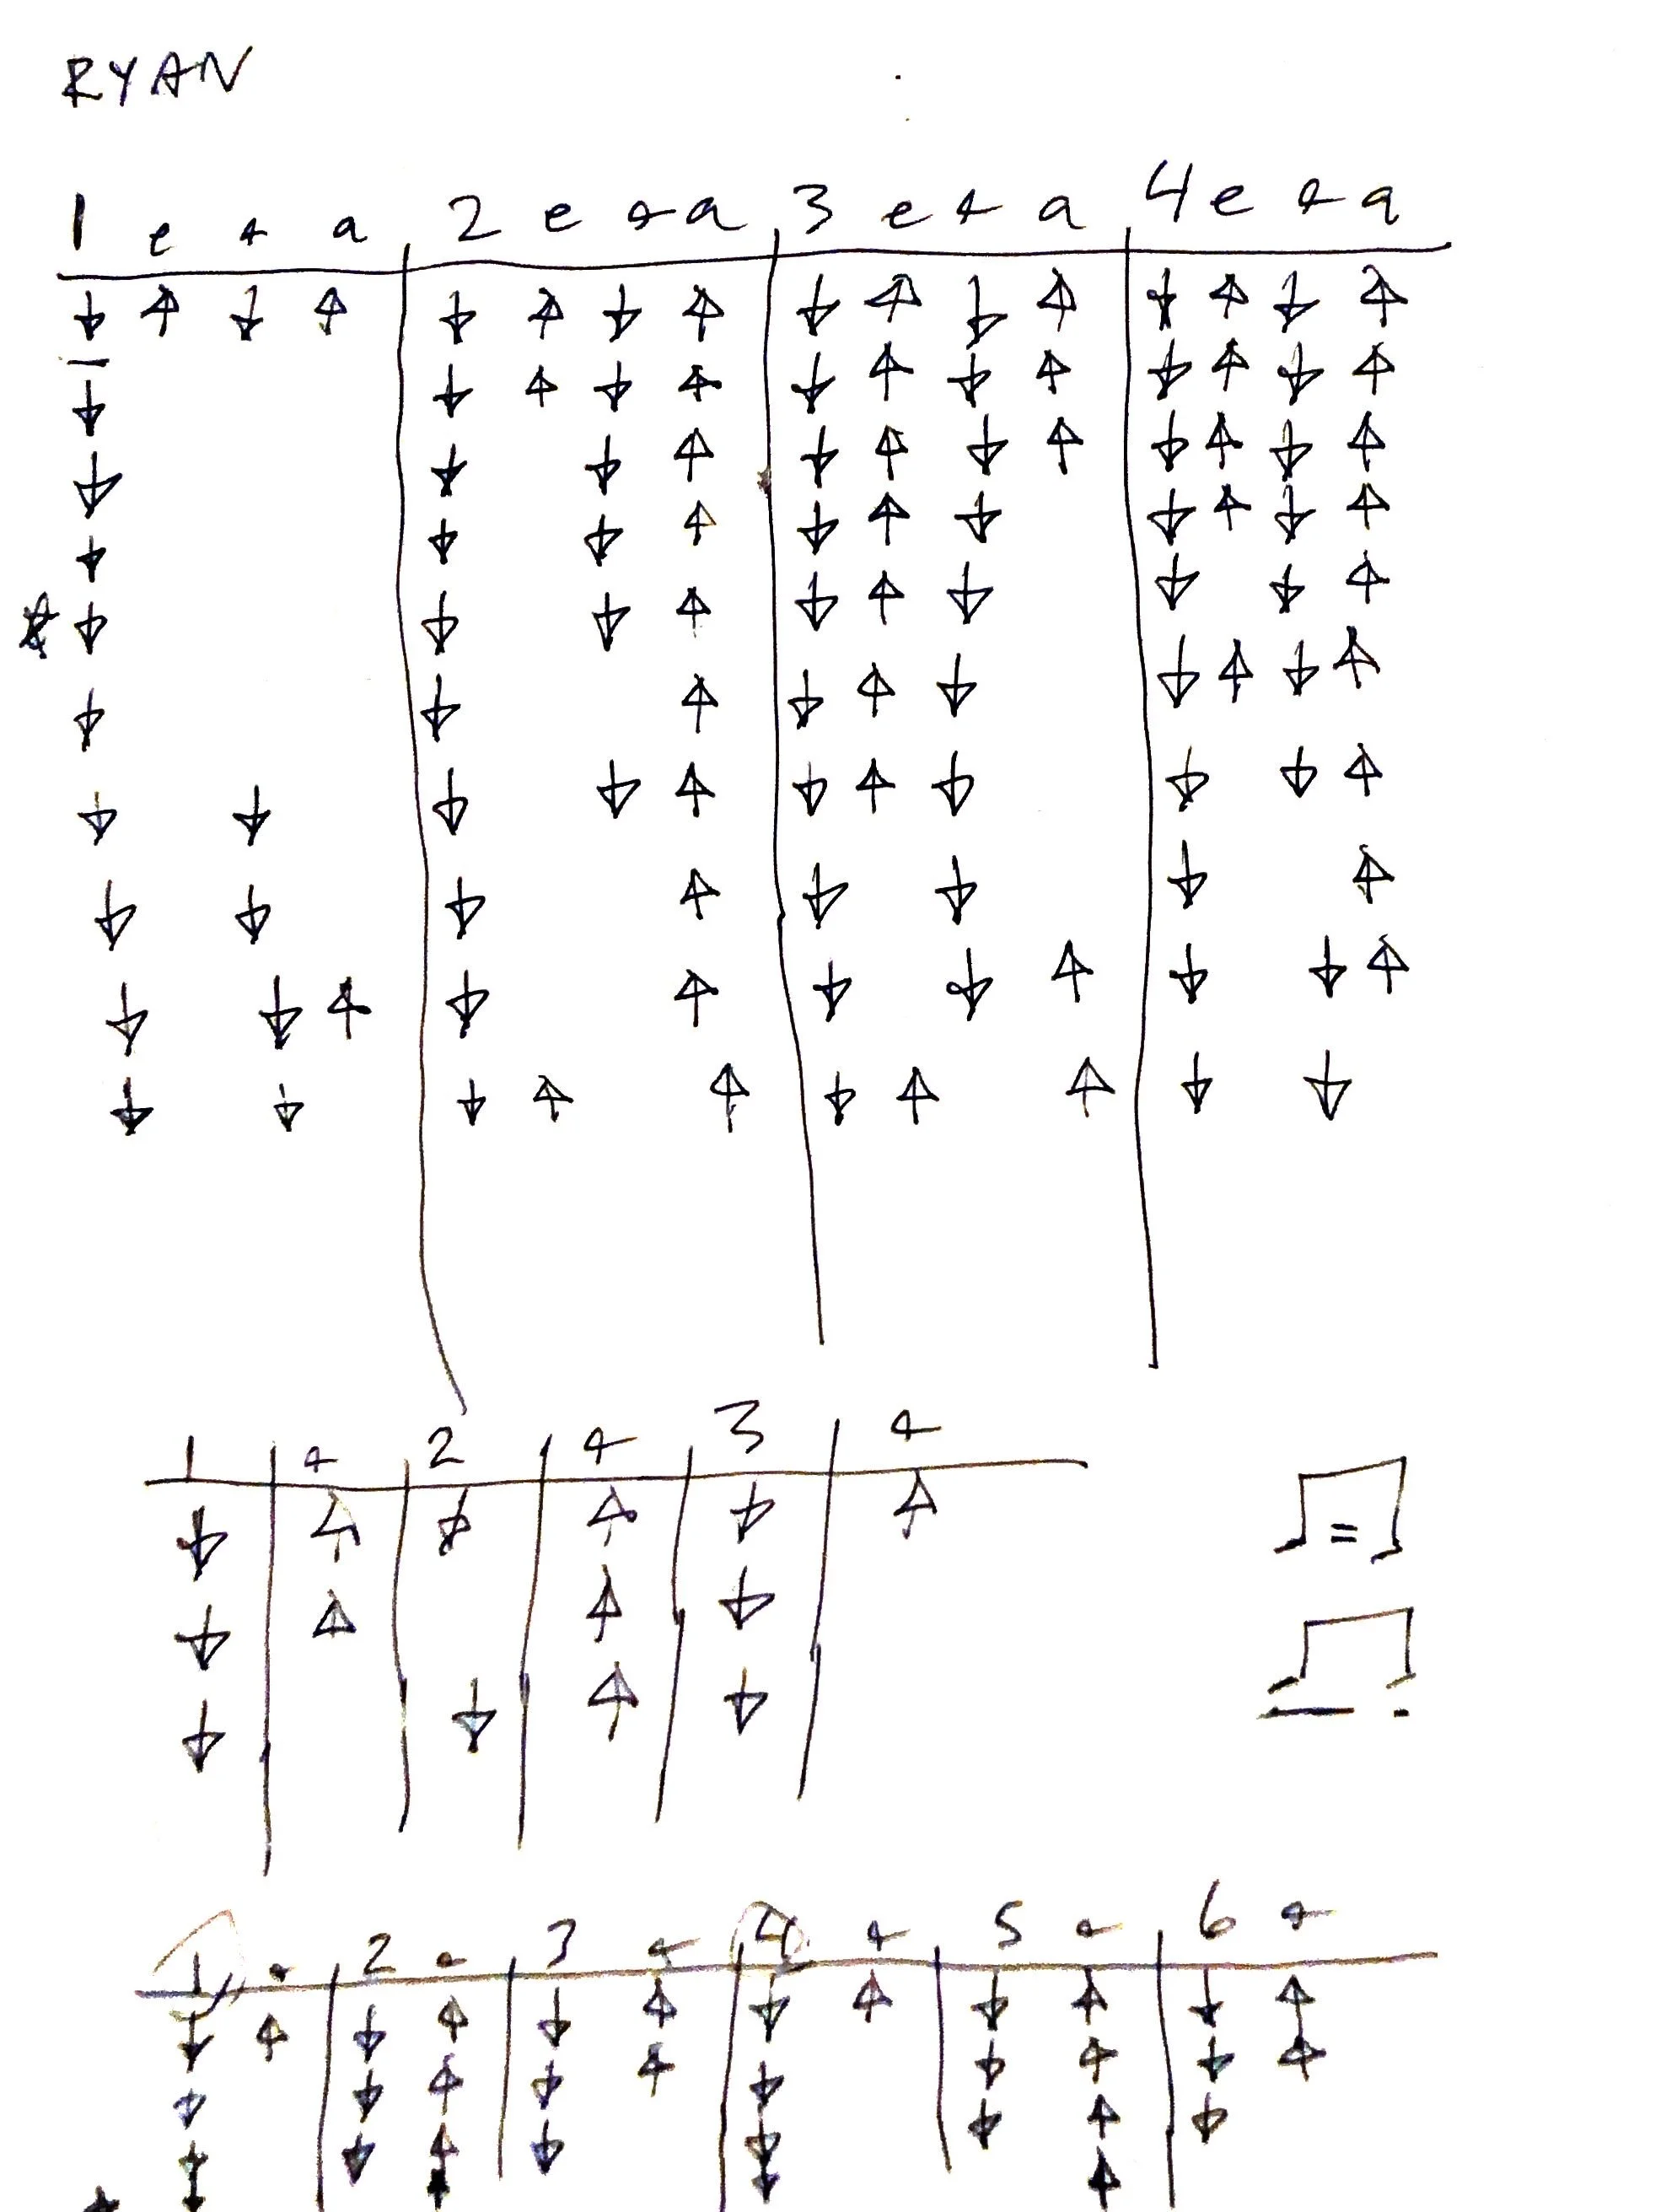 RYAN
1 e + a 2 e + a 3 e + a 4 e + a
↓ ↑ ↓ ↑ ↓ ↑ ↓ ↑ ↓ ↑ ↓ ↑ ↓ ↑ ↓ ↑
↓ ↓ ↑ ↓ ↑ ↓ ↑ ↓ ↑ ↓ ↑ ↓ ↑
↓ ↓ ↓ ↑ ↓ ↑ ↓ ↑ ↓ ↑ ↓ ↑
↓ ↓ ↓ ↑ ↓ ↑ ↓ ↓ ↑ ↓ ↑
↓ ↓ ↓ ↑ ↓ ↑ ↓ ↓ ↓ ↑
↓ ↓ ↑ ↓ ↑ ↓ ↓ ↑ ↓ ↑
↓ ↓ ↓ ↓ ↑ ↓ ↑ ↓ ↓ ↓ ↑
↓ ↓ ↓ ↑ ↓ ↓ ↓ ↑
↓ ↓ ↑ ↓ ↑ ↓ ↓ ↑ ↓ ↓ ↑
↓ ↓ ↓ ↑ ↑ ↓ ↑ ↑ ↓ ↓
1 + 2 + 3 +
↓ ↑ ↓ ↑ ↓ ↑
↓ ↑ ↑ ↓
↓ ↓ ↑ ↓
=
1 + 2 + 3 + 4 + 5 + 6 +
↓ ↑ ↓ ↑ ↓ ↑ ↓ ↑ ↓ ↑ ↓ ↑
↓ ↓ ↑ ↓ ↑ ↓ ↓ ↑ ↓ ↑
↓ ↓ ↑ ↓ ↓ ↓ ↑ ↓
↓ ↑ ↓ ↑